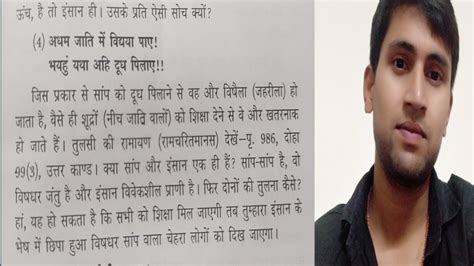 ऊंच, है तो इंसान ही। उसके प्रति ऐसी सोच क्यों?
(4) अधम जाति में विद्यया पाए!
भयहुं यवा अहि दूध पिलाए!!
जिस प्रकार से सांप को दूध पिलाने से वह और विषैला (जहरीला) हो
जाता है, वैसे ही शूद्रों (नीच जाति वालों) को शिक्षा देने से वे और खतरनाक
हो जाते हैं। तुलसी की रामायण (रामचरितमानस) देखें-पृ. 986, दोहा
99(3), उत्तर काण्ड। क्या सांप और इंसान एक ही हैं? सांप-सांप है, वो
विषधर जंतु है और इंसान विवेकशील प्राणी है। फिर दोनों की तुलना कैसे?
हां, यह हो सकता है कि सभी को शिक्षा मिल जाएगी तब तुम्हारा इंसान के
भेष में छिपा हुआ विषधर सांप वाला चेहरा लोगों को दिख जाएगा।